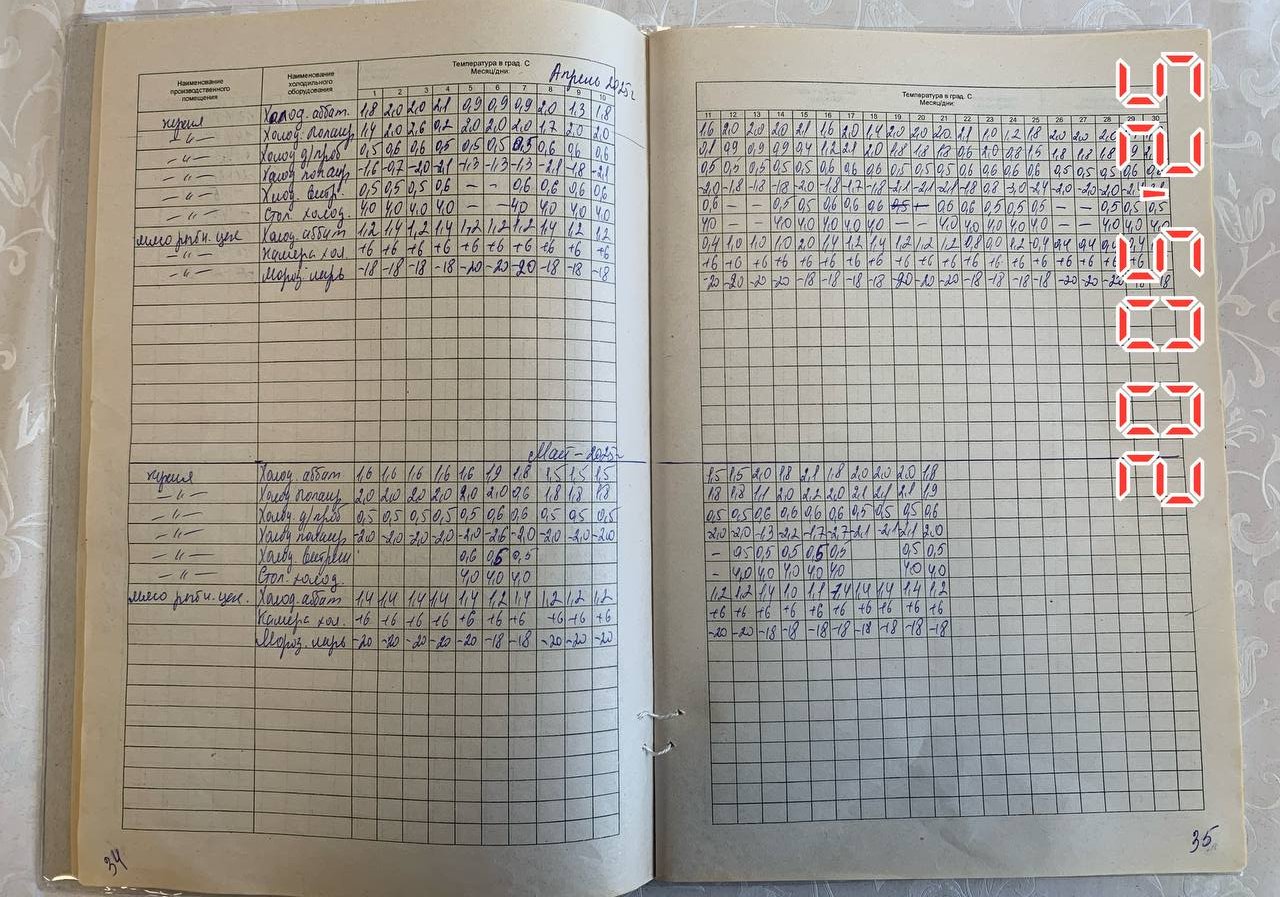 Наименование производственного помещения
Наименование холодильного оборудования
Температура в град. С
Месяц/дни:
Апрель 2025г
1 2 3 4 5 6 7 8 9 10
кухня Холод. аббат. 1,8 2,0 2,0 2,1 0,9 0,9 0,9 2,0 1,3 1,8
-"- Холод. 1,4 2,0 2,6 0,2 2,0 2,0 2,0 1,7 2,0 2,0
-"- Холод д/проб 0,5 0,6 0,6 0,5 0,5 0,5 0,5 0,6 0,6 0,6
-"- Холод -1,6 -0,7 -2,0 -2,1 -1,3 -1,3 -1,3 -2,1 -1,8 -2,1
-"- Холод. витр. 0,5 0,5 0,5 0,6 – – 0,6 0,6 0,6 0,6
-"- Стол. холод. 4,0 4,0 4,0 4,0 – – 4,0 4,0 4,0 4,0
мясо рыбн. цех Холод. аббат 1,2 1,4 1,2 1,4 1,2 1,2 1,2 1,4 1,2 1,2
-"- Камера хол. +6 +6 +6 +6 +6 +6 +6 +6 +6 +6
-"- Мороз. ларь -18 -18 -18 -18 -20 -20 -20 -18 -18 -18
Май – 2025г
кухня Холод. аббат 1,6 1,6 1,6 1,6 1,6 1,9 1,8 1,5 1,5 1,5
-"- Холод 2,0 2,0 2,0 2,0 2,0 2,0 0,6 1,8 1,8 1,8
-"- Холод д/проб 0,5 0,5 0,5 0,5 0,5 0,6 0,6 0,5 0,5 0,5
-"- Холод -2,0 -2,0 -2,0 -2,0 -2,0 -2,6 -2,0 -2,0 -2,0 -2,0
-"- Холод. 0,6 0,5 0,5
-"- Стол. холод. 4,0 4,0 4,0
мясо рыбн. цех. Холод. аббат 1,4 1,4 1,4 1,4 1,4 1,2 1,4 1,2 1,2 1,2
Камера хол. +6 +6 +6 +6 +6 +6 +6 +6 +6 +6
Мороз. ларь -20 -20 -20 -20 -20 -18 -18 -20 -20 -20
34
Температура в град. С
Месяц/дни:
11 12 13 14 15 16 17 18 19 20 21 22 23 24 25 26 27 28 29 30
1,6 2,0 2,0 2,0 2,1 1,6 2,0 1,4 2,0 2,0 2,0 2,1 1,0 1,2 1,8 2,0 2,0 2,0
0,1 0,9 0,9 0,9 0,4 1,2 2,1 2,0 1,8 1,8 1,8 0,6 2,0 0,8 1,5 1,8 1,8 1,8
0,5 0,5 0,5 0,5 0,5 0,6 0,6 0,6 0,5 0,5 0,5 0,6 0,6 0,6 0,6 0,5 0,5 0,5 0,6
-2,0 -1,8 -1,8 -1,8 -2,0 -1,8 -1,7 -1,8 -2,1 -2,1 -2,1 -1,8 0,8 -2,4 -2,0 -2,0 -2,0
0,6 – – 0,5 0,5 0,6 0,6 0,6 0,6 0,6 0,5 0,5 0,5 – – 0,5 0,5 0,5
4,0 – 4,0 4,0 4,0 4,0 4,0 – – 4,0 4,0 4,0 4,0 4,0 – – 4,0 4,0 4,0
0,4 1,0 1,0 1,0 2,0 1,4 1,2 1,4 1,2 1,2 1,2 0,8 0,0 1,2 0,4 0,4 0,4
+6 +6 +6 +6 +6 +6 +6 +6 +6 +6 +6 +6 +6 +6 +6 +6 +6 +6 +6
-20 -20 -20 -20 -18 -18 -18 -18 -20 -20 -20 -18 -18 -18 -18 -20 -20 -20
1,5 1,5 2,0 1,8 2,1 1,8 2,0 2,0 2,0 1,8
1,8 1,8 1,1 2,0 2,2 2,0 2,1 2,1 2,1 1,9
0,5 0,5 0,6 0,6 0,6 0,6 0,5 0,5 0,5 0,6
-2,0 -2,0 -1,3 -2,2 -1,7 -2,7 -2,1 -2,1 -2,1 2,0
– 0,5 0,5 0,5 0,5 0,5 0,5 0,5
– 4,0 4,0 4,0 4,0 4,0 4,0 4,0
1,2 1,2 1,4 1,0 1,1 1,4 1,4 1,4 1,4 1,2
+6 +6 +6 +6 +6 +6 +6 +6 +6 +6
-20 -20 -18 -18 -18 -18 -18 -18 -18 -18
35
2005.25